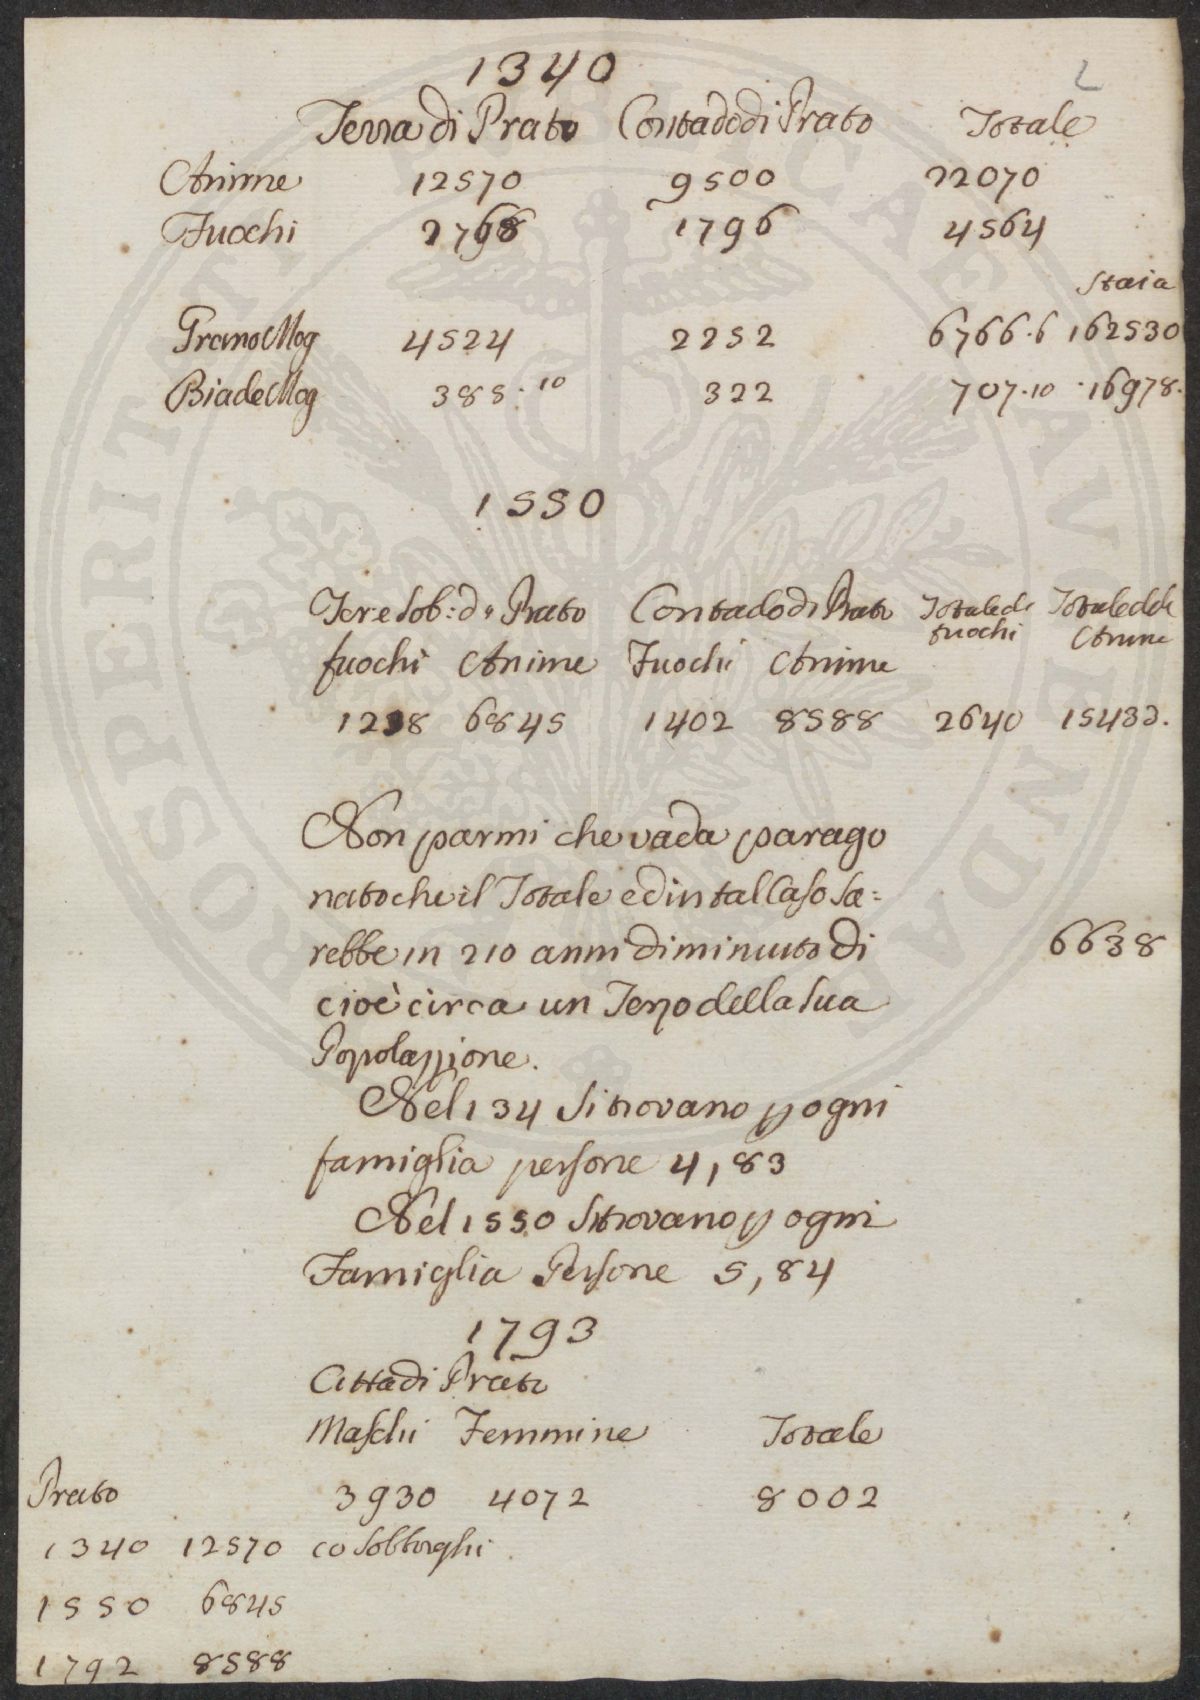 2
1340
Terra di Prato Contado di Prato Totale
Anime 12570 9500 22070
Fuochi 2768 1796 4564
Staia
Grano Mog 4524 2252 6766.6 162530
Biade Mog 385.10 322 707.10 16978.
1550
Ter: e Sob: d. Prato Contado di Prato Totale di Totale delle
fuochi Anime
fuochi Anime Fuochi Anime
1238 6845 1402 8588 2640 15433.
Non parmi che vada parago
nato che il Totale ed in tal Caso sa=
rebbe in 210 anni diminuito di 6638
cioè circa un Terzo della sua
Popolazzione.
Nel 134 si trovano p ogni
famiglia persone 4,83
Nel 1550 si trovano p ogni
Famiglia Persone 5,84
1793
Citta di Prato
Maschi Femmine Totale
Prato 3930 4072 8002
1340 12570 co Sobborghi
1550 6845
1792 8588
PROSPERITATI PUBLICAE AUGENDAE